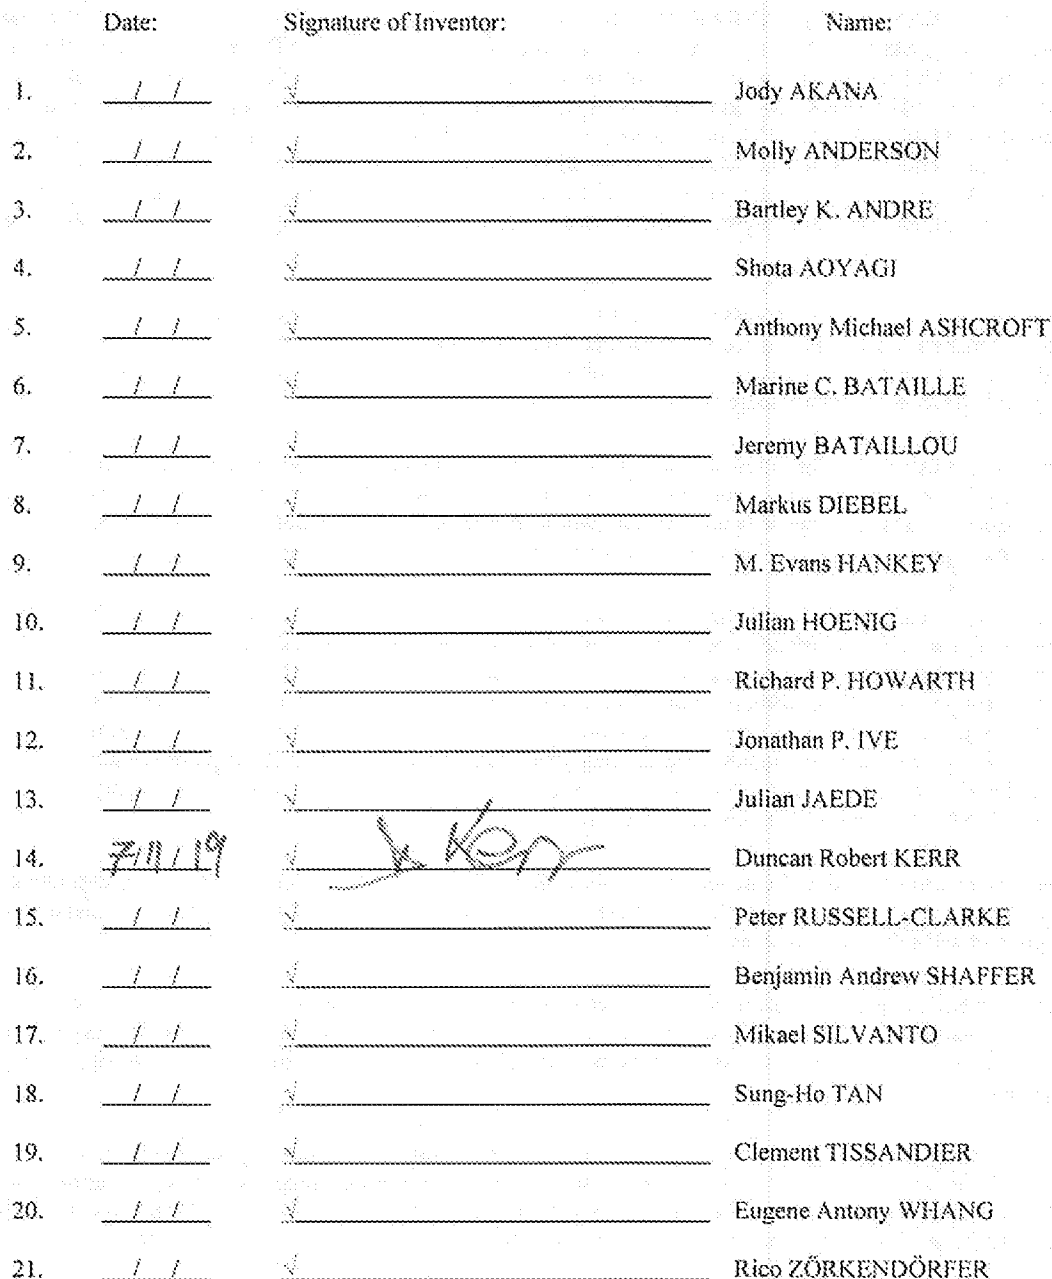 Date: Signature of Inventor: Name:
1. / / √ Jody AKANA
2. / / √ Molly ANDERSON
3. / / √ Bartley K. ANDRE
4. / / √ Shota AOYAGI
5. / / √ Anthony Michael ASHCROFT
6. / / √ Marine C. BATAILLE
7. / / √ Jeremy BATAILLOU
8. / / √ Markus DIEBEL
9. / / √ M. Evans HANKEY
10. / / √ Julian HOENIG
11. / / √ Richard P. HOWARTH
12. / / √ Jonathan P. IVE
13. / / √ Julian JAEDE
14. 7/11/19 √ Duncan Robert KERR
15. / / √ Peter RUSSELL-CLARKE
16. / / √ Benjamin Andrew SHAFFER
17. / / √ Mikael SILVANTO
18. / / √ Sung-Ho TAN
19. / / √ Clement TISSANDIER
20. / / √ Eugene Antony WHANG
21. / / √ Rico ZÖRKENDÖRFER